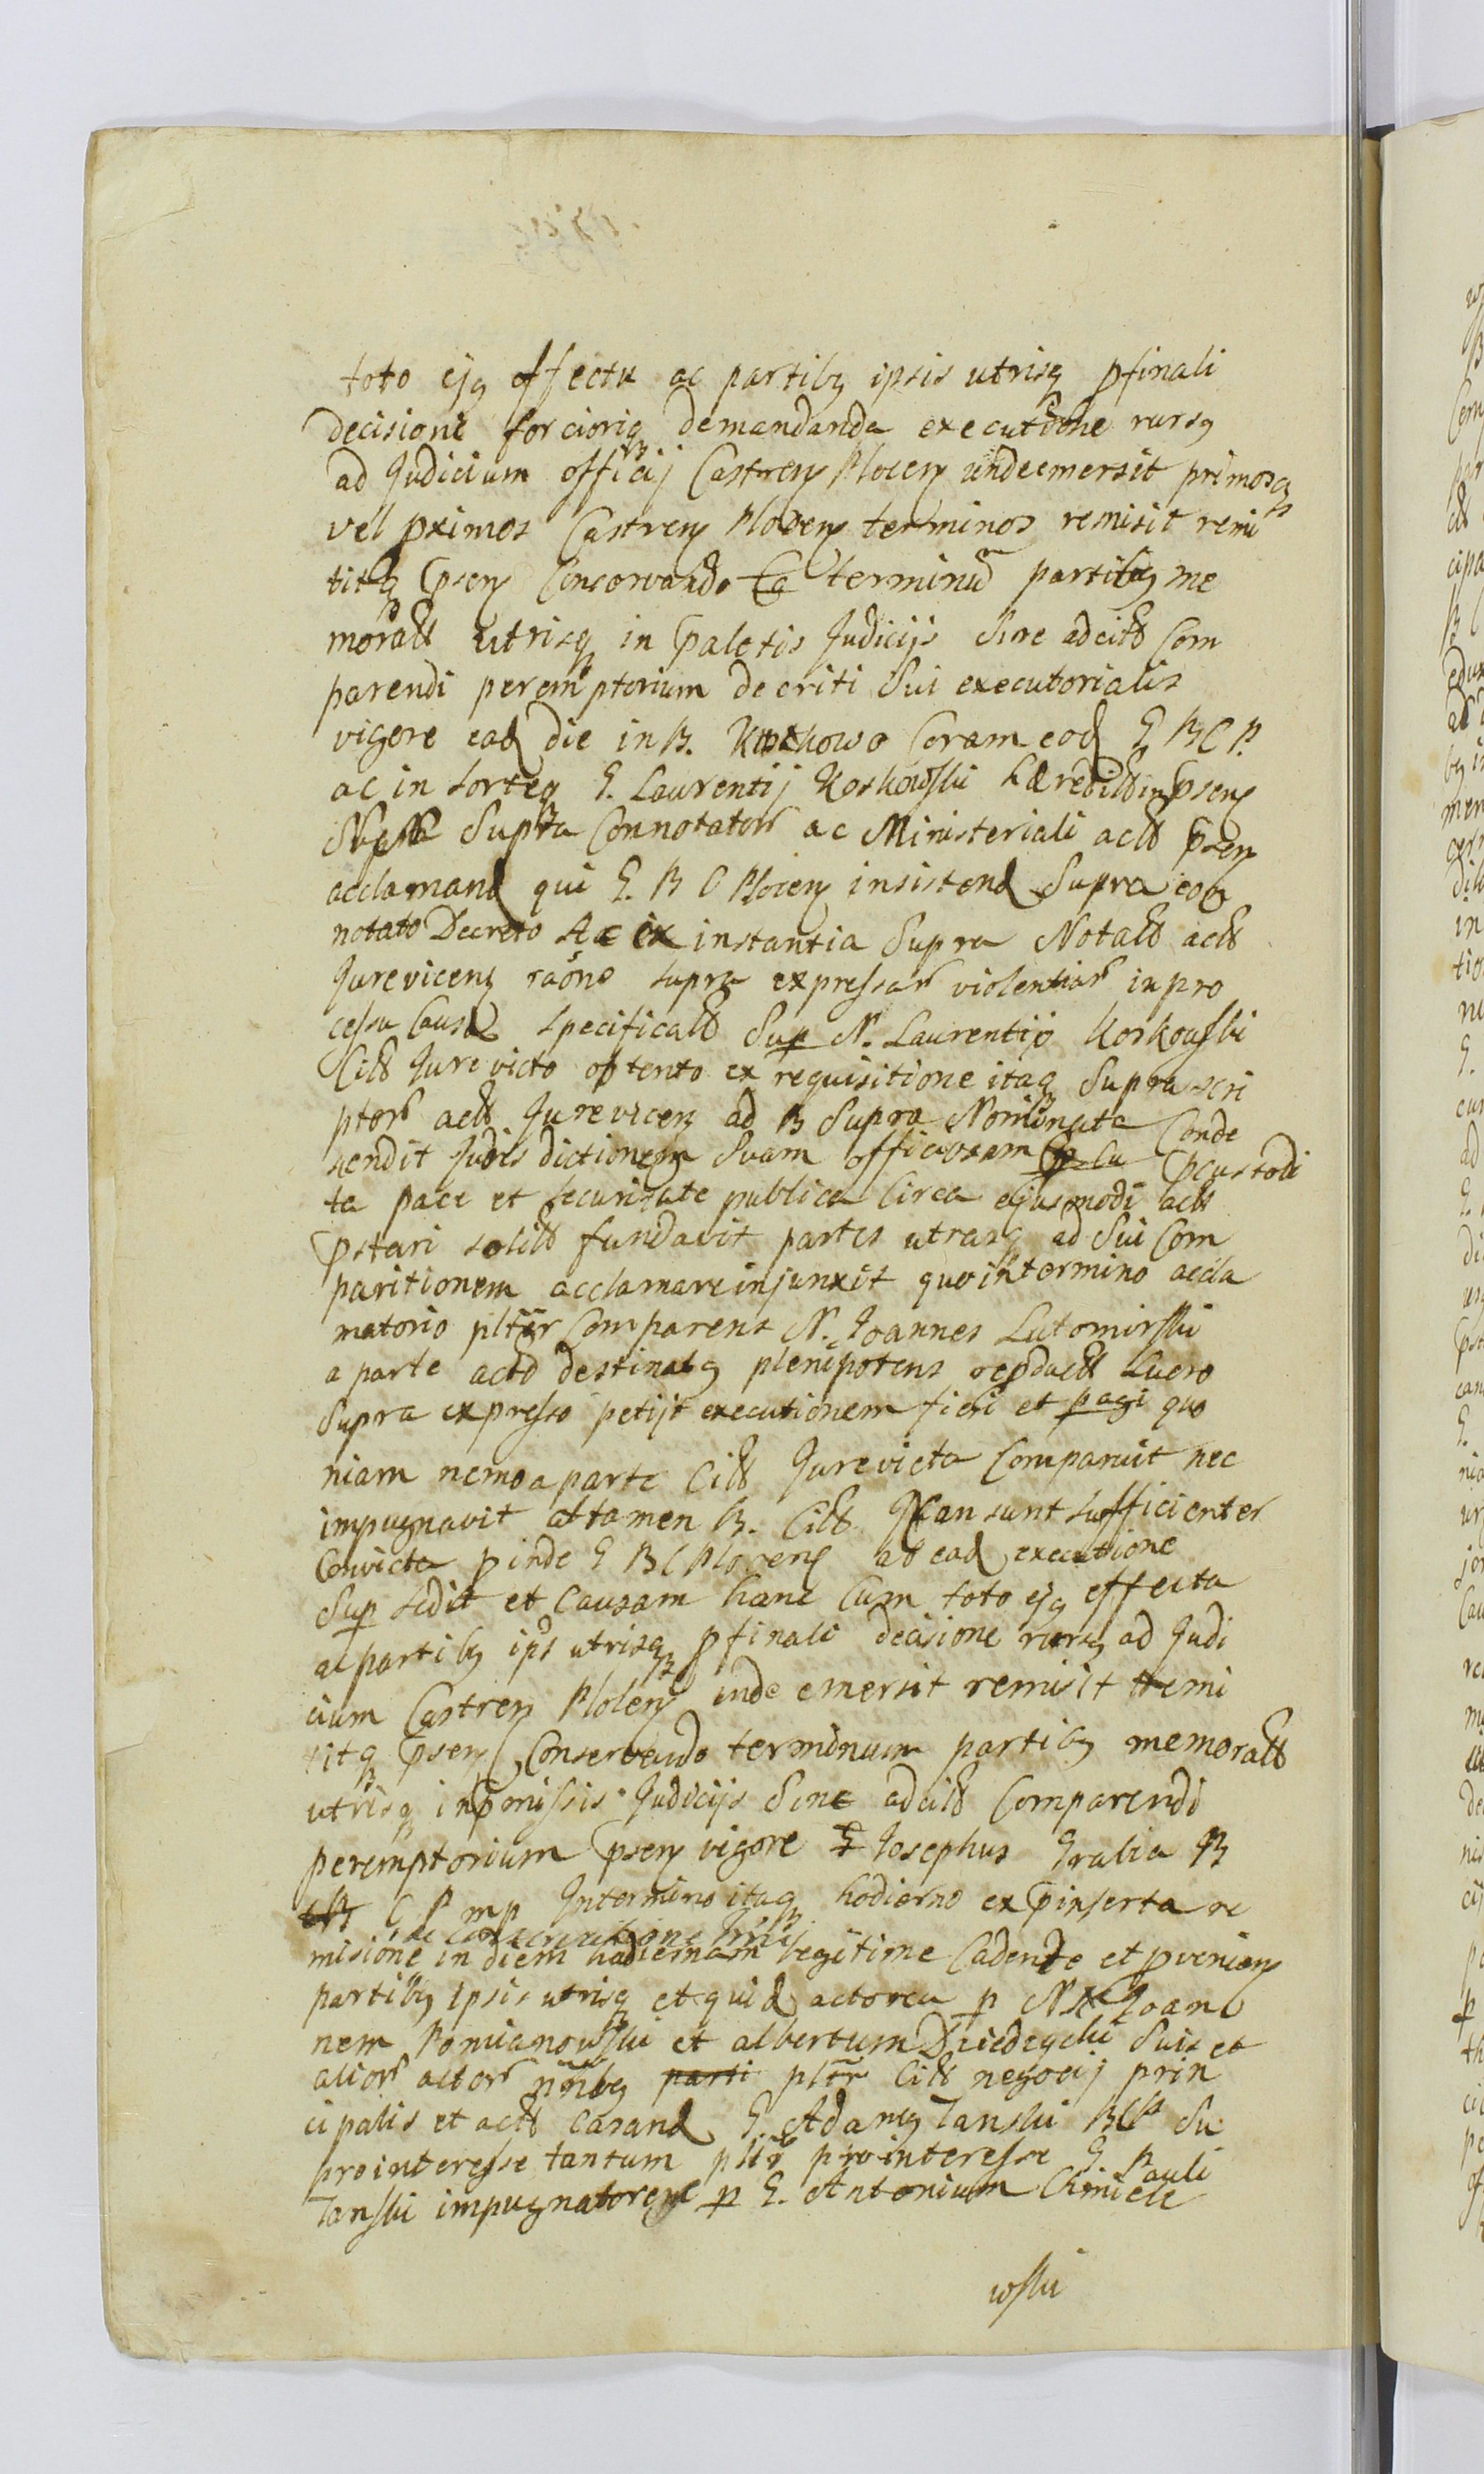 toto ejq effectu ac partibq ipsis utrisq pfinali
decisione forcioriq demandanda executione rursq
ad Judicium officij Castren Plocen unde emersit primosq
vel pximos Castren Plocen terminos remisit remi
titq psen Conservando terminu partibq me
moratt utrisq in paletis Judicijs Sine adcitt Com
parendi peremptorium decreti Sui executorialis
vigore ead die in B. Koskowo Coram eod G B C P.
ac in sorteq G. Laurentij Koskowski hæreditt in psen
Supra Connotator ac Ministeriali actt psen
acclamand qui G. B C Plocen insistend Supra con
notato Decreto Ac ex instantia Supra Notatt actt
Jurevicen raöne supra expressar violentiar in pro
cessu Causæ specificatt Sup N. Laurentio Koskowski
Citt Jurevicto obtento ex requisitione itaq Suprascri
ptor actt Jurevicen ad B Supra Nominata Conde
scendit Jurisdictionem Suam officiosam pcustodi
ta pace et securitate publica Circa ejusmodi actt
pstari solitt fundavit partes utrasq ad Sui Com
paritionem acclamare injunxit quo in termino accla
matorio pltër Comparens N. Joannes Lutomirski
a parte actt destinatq plenipotens repductt Lucro
Supra expresso petijt executionem fieri et pagi quo
niam nemo a parte Citt Jurevicta Comparuit nec
impugnavit attamen B. Citt sunt sufficienter
Convicta pinde G B C Plocen ab ead executione
Sup sedit et Causam hanc Cum toto ejq effectu
ac partibq ips utrisq pfinali decisione rursq ad Judi
cium Castren Plocen unde emersit remisit remi
titq psen Conservando terminum partibq memoratt
utrisq in pmissis Judicijs Sine adcitt Comparendi
peremptorium psen vigore Josephus Gralia B
C P mp In termino itaq hodierno ex pinserta re
misione in diem hodiernam legitime Cadente et pvenien
partibq ipsis utrisq et quid actorea p N N Joan
nem Pomianowski et albertum Dziedzycki Suis et
alior actor nnibq parti pltër Citt negocij prin
cipalis et actt Casand G. Adamq Tanski BCP Su
pro interesse tantum pltër pro interesse G Pauli
Tanski impugnatore p G. Antonium Chmiele
wski